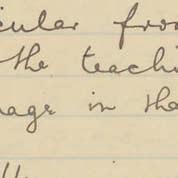 icular fro
the teachi
nage in tha